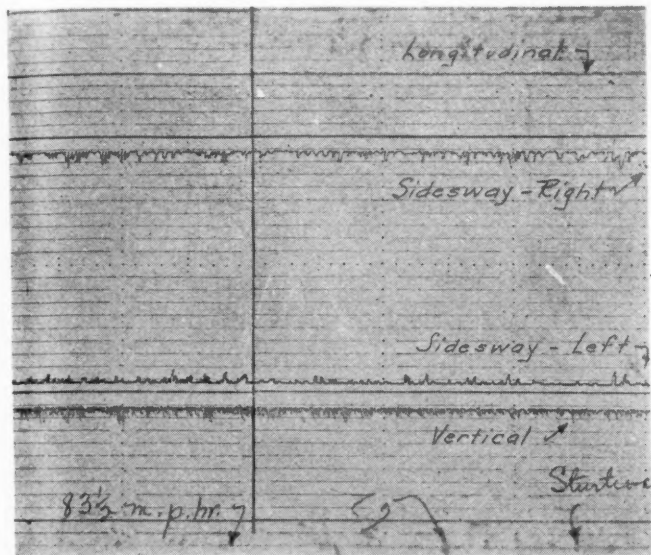 Longitudinal
Sidesway - Right
Sidesway - Left
Vertical
83½ m.p.hr.